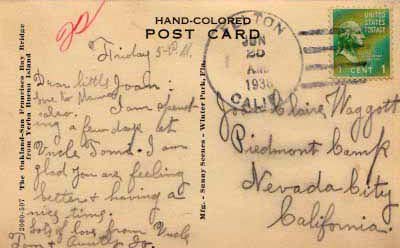 20
HAND-COLORED
POST CARD
The Oakland-San Francisco Bay Bridge
from Yerba Buena Island
Mfg. - Sunny Scenes - Winter Park, Fla.
TON
JUN
1938
CALIF
UNITED
STATES
POSTAGE
1 CENT 1
Friday
Dear little Joan:
I am spend-
ing a few days at
Uncle Tom's. I am
glad you are feeling
better & having a
nice time.
Lots of love from Uncle
Tom & Aunty Jo.
Joan Claire Waggott
Piedmont Camp
Nevada City
California.